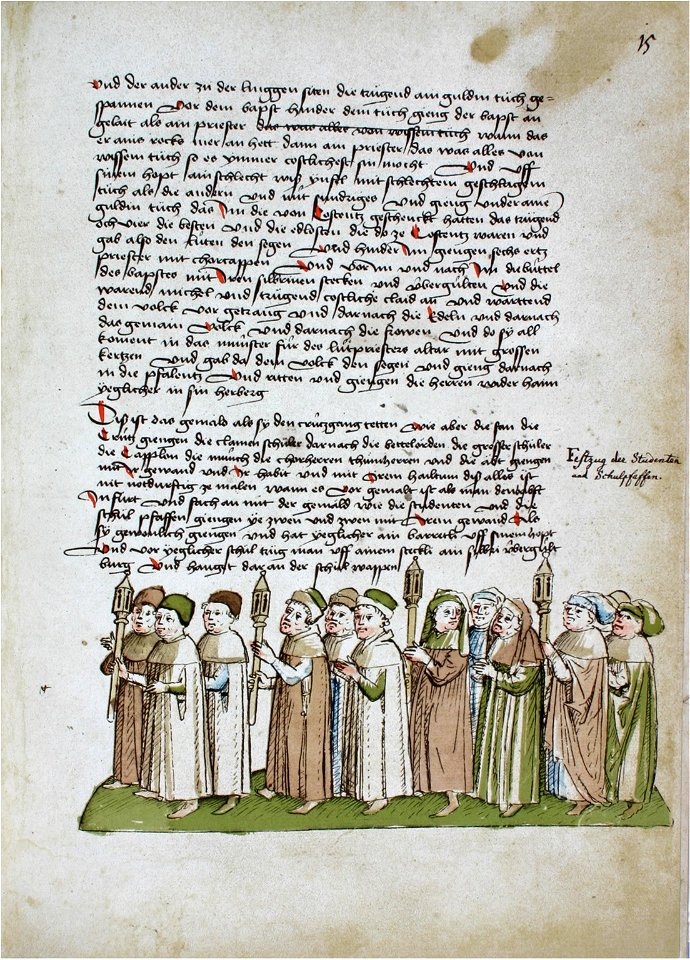 15
und der ander zu der linggen siten die trugend ain guldin tuch ge-
spannen Vor dem bapst hinder dem tuch gieng der bapst an
geleit als ain priester das was alles von wissem tuch wann das
er ains rocks mer an hett dann ain priester das was alles von
wissem tuch so es ymmer costlichest sin mocht Und uff
sinem hopt ain schlecht wiß ynfel mit schlechtem geschlagem
tuch als die andern und mit und gieng under aine
guldin tuch das Im die von Costentz geschenckt hatten das trugend
och vier die besten und die edlosten die do ze Costentz waren und
gab also den luten den segen Und hinder Im giengen sechs ertz
priester mit chorcappen Und vor Im und nach Im die büttel
des bapstes mit Iren silbrinen stecken und übergülten Und die
warend michel und trugend costliche claid an und warttend
dem volck vor getrang und darnach die Edeln und darnach
das gemain volck und darnach die frowen und do sy all
koment in das münster für des lütpriesters altar mit grossen
kertzen Und gab da dem volck den segen und gieng darnach
in die pfalentz Und ritten und giengen die herren wider haim
yeglicher in sin herberg
Diß ist das gemald als sy den crützgang tetten wie aber die fan die
Crütz giengen die clainen schüler darnach die bettelorden die grossen schüler
die Capplon die münch die chorherren thumherren und die äbt giengen
mit Ir gewand und Ir habit und mit Irem hailtum diß alles ist
mit notdurftig ze malen wann es vor gemalt ist als man
In furt und fach an mit der gemäld wie die studenten und die
schül pfaffen giengen ye zwen und zwen mit Irem gewand Als
sy gewonlich giengen und hat yeglicher ain barreth uff sinem hopt
Und vor yeglicher schul trug man uff ainem steckli ain silbri übergült
burg Und hangt dar an der schul wappen
Festzug der Studenten
und Schulpfaffen.